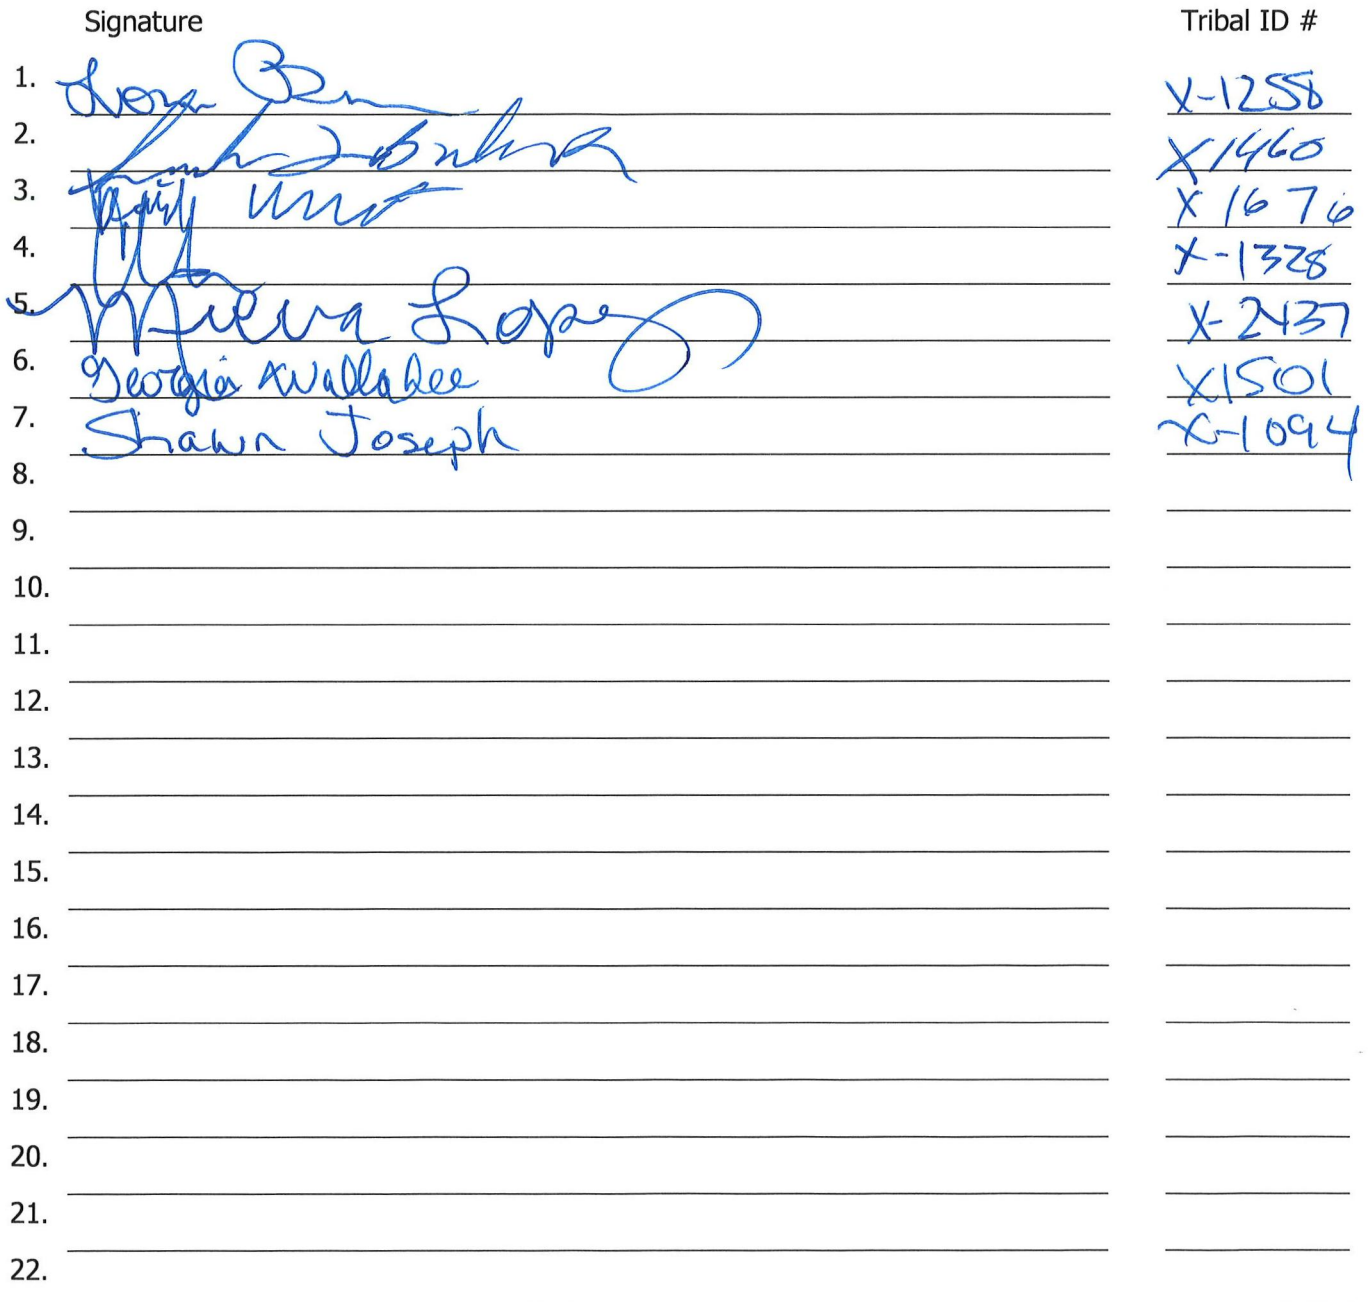 Signature Tribal ID #
1. X-1258
2. X1460
3. X1676
4. X-1328
5. Lopez X-2437
6. Georgia Wallahee X1501
7. Shawn Joseph X-1094
8.
9.
10.
11.
12.
13.
14.
15.
16.
17.
18.
19.
20.
21.
22.